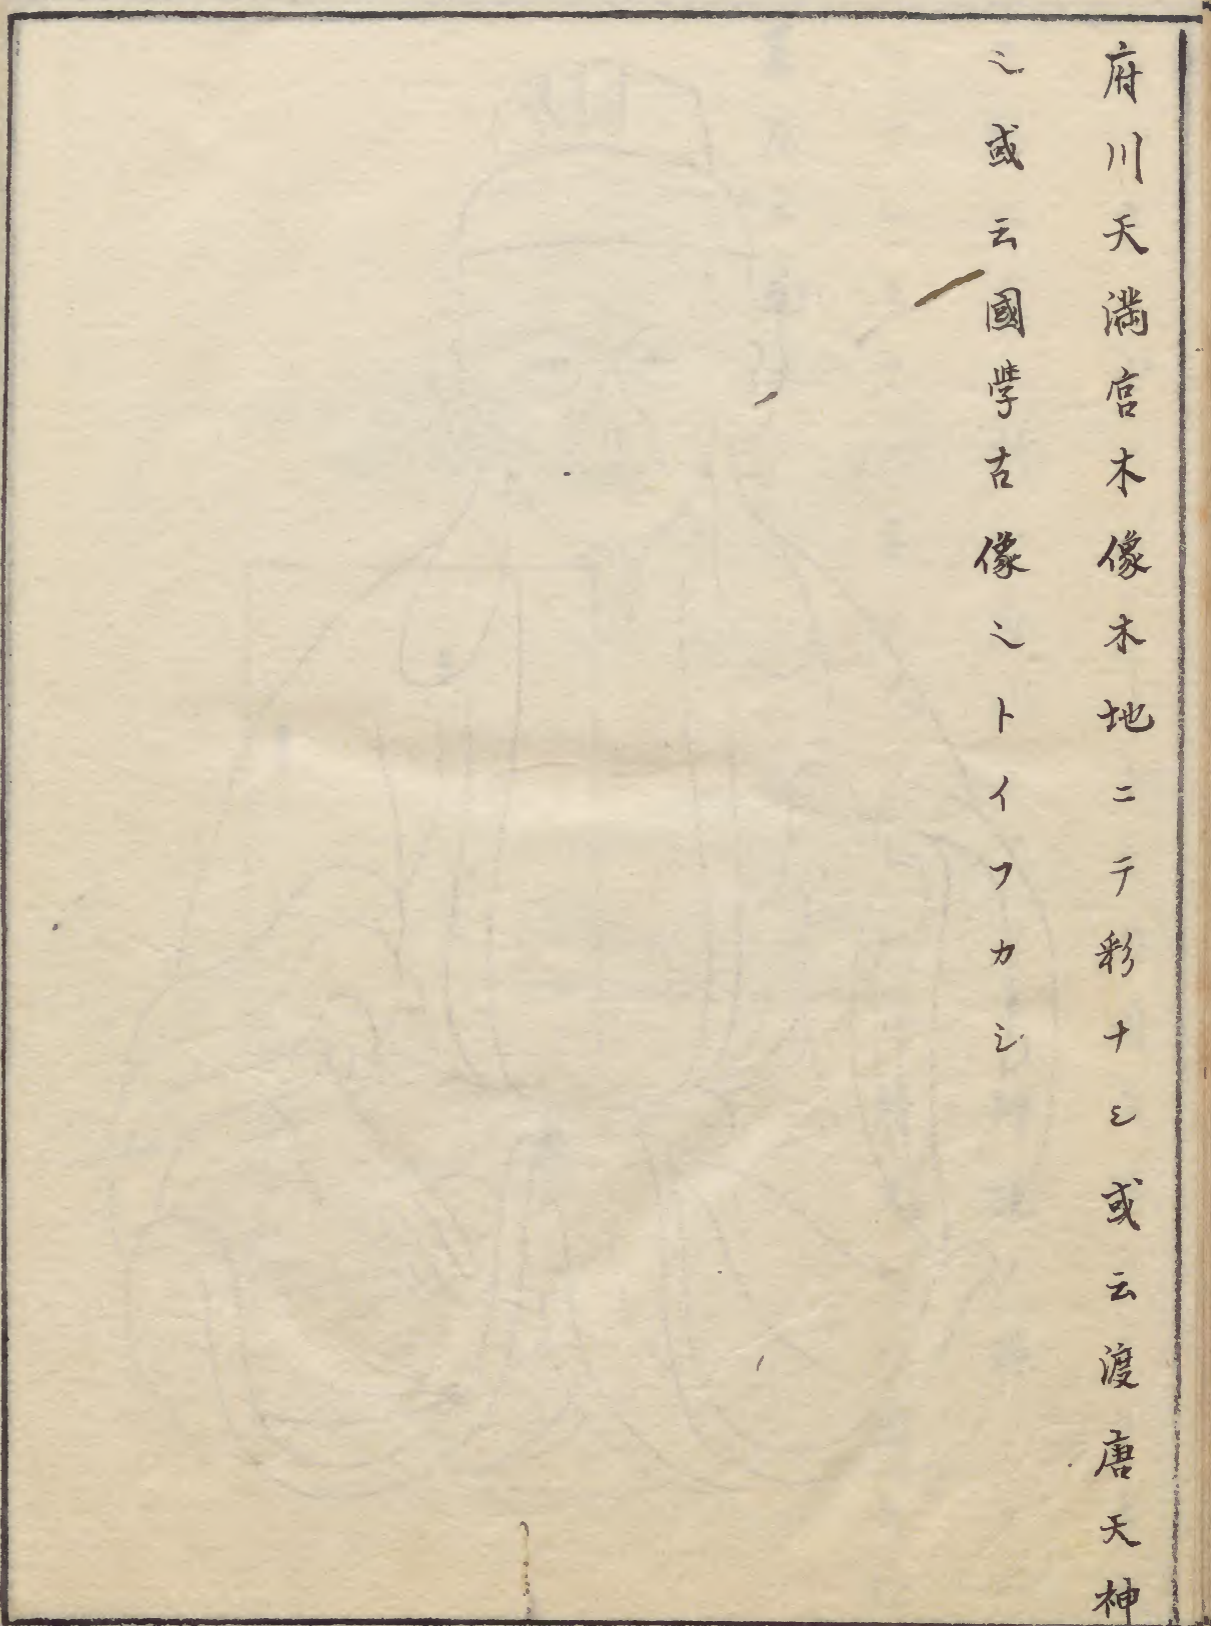 府川天満宮木像木地ニテ彩ナシ或云渡唐天神
也或云國學古像也トイフカシ